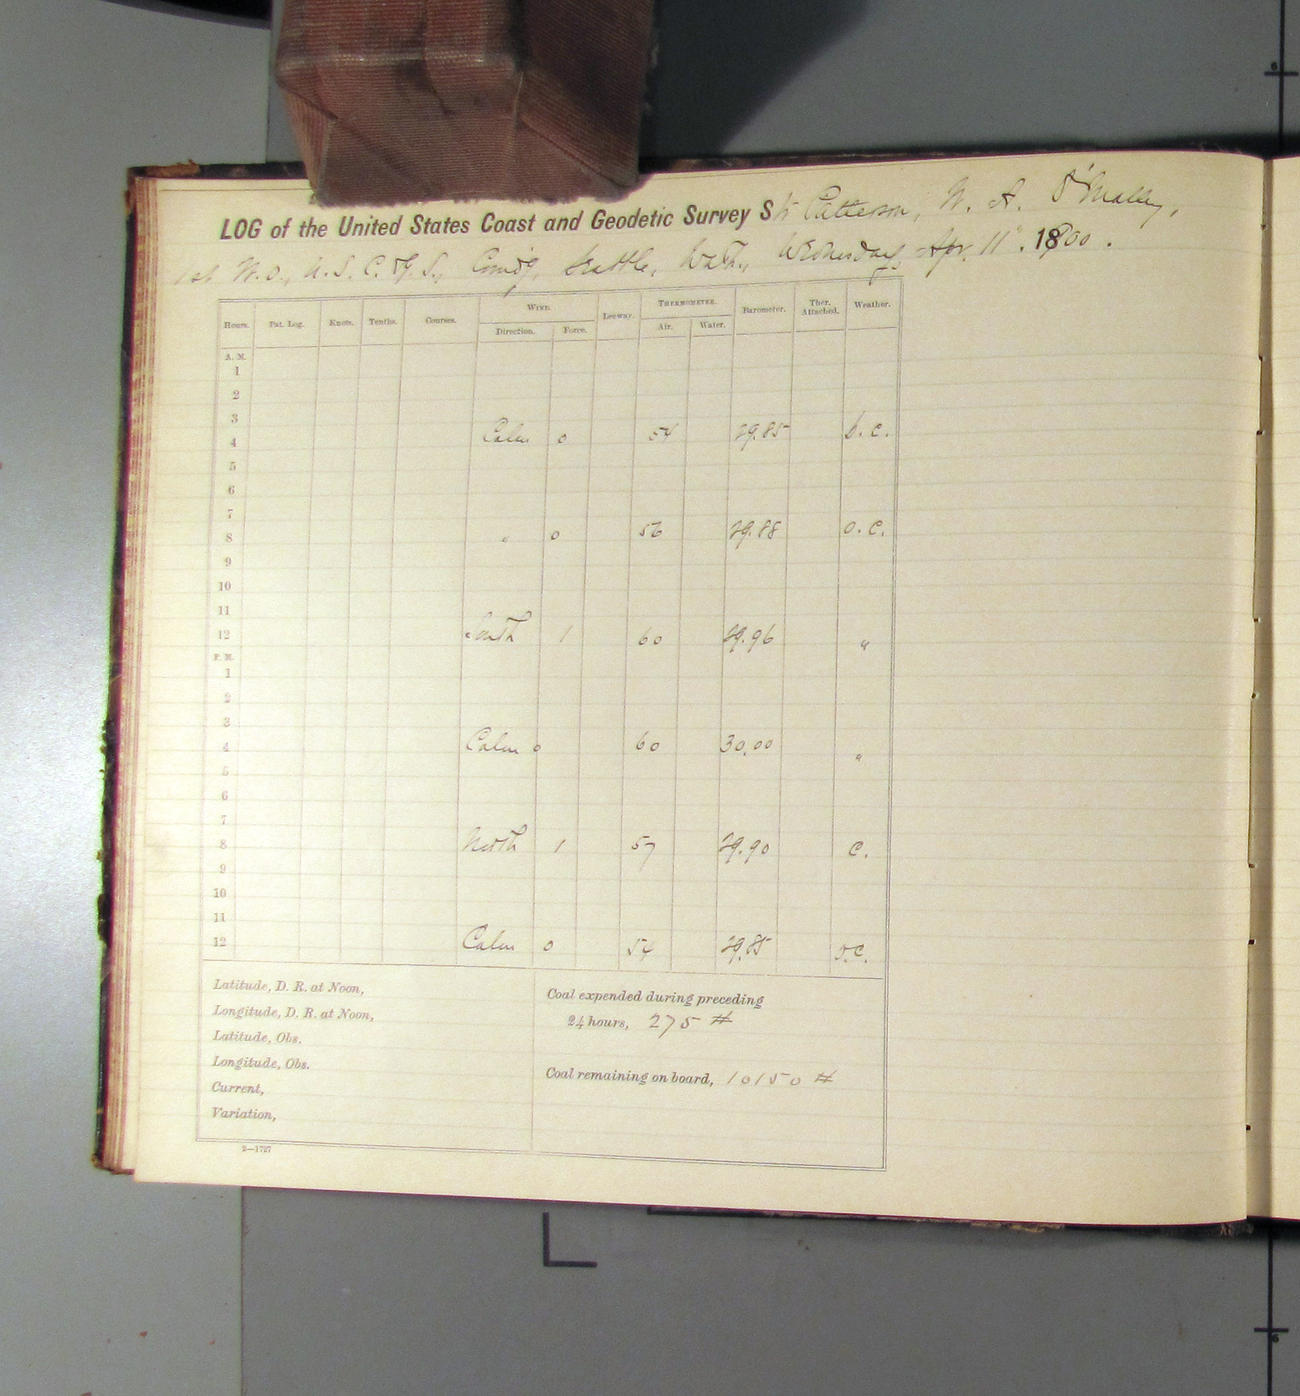 LOG of the United States Coast and Geodetic Survey Str Patterson, W. A. O'Malley,
1st W.O., U.S.C. & G.S., Comd'g, Seattle, Wash., Wednesday, Apr. 11", 1900.
Hours. Pat. Log. Knots. Tenths. Courses. WIND. Leeway. THERMOMETER. Barometer. Ther. Attached. Weather.
Direction. Force. Air. Water.
A. M.
1
2
3
4 Calm 0 54 29.85 b.c.
5
6
7
8 " 0 56 29.88 o.c.
9
10
11
12 South 1 60 29.96 "
P. M.
1
2
3
4 Calm 0 60 30.00 "
5
6
7
8 North 1 57 29.90 c.
9
10
11
12 Calm 0 54 29.85 o.c.
Latitude, D. R. at Noon,
Longitude, D. R. at Noon,
Latitude, Obs.
Longitude, Obs.
Current,
Variation,
Coal expended during preceding
24 hours, 275 #
Coal remaining on board, 10150 #
2—1727
6
6